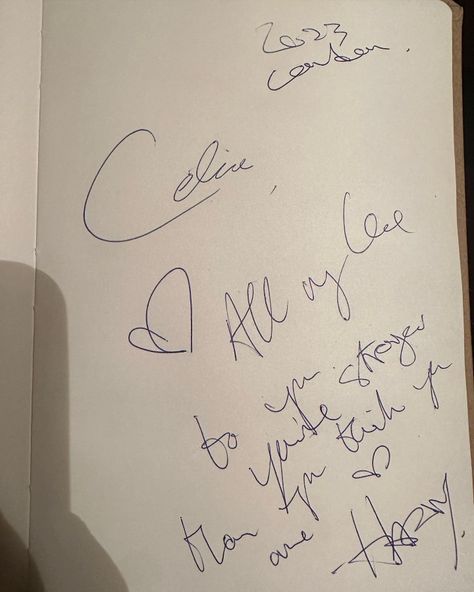 2023
London.
Celine,
♡ All my love
to you.
you're stronger
than you think you
are ♡ HARRY